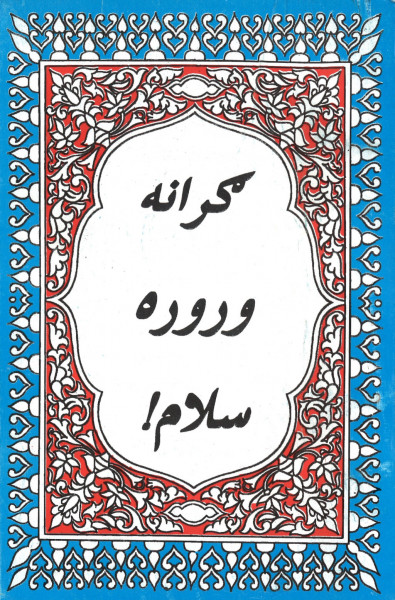 ګرانه
وروره
سلام!